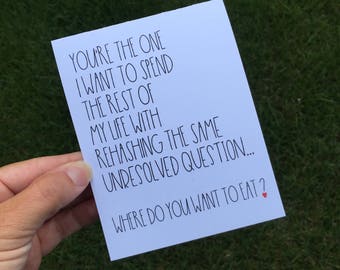 YOU'RE THE ONE
I WANT TO SPEND
THE REST OF
MY LIFE WITH
REHASHING THE SAME
UNDESOLVED QUESTION...
WHERE DO YOU WANT TO EAT?